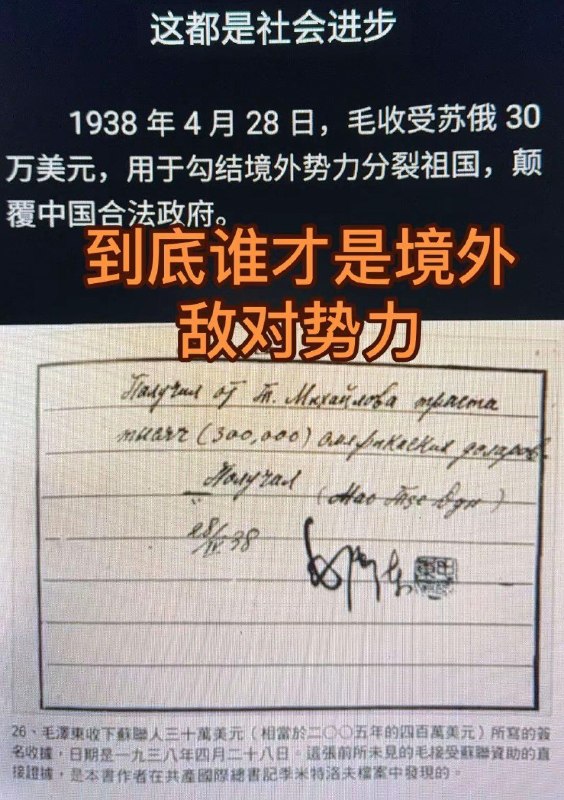 这都是社会进步
1938 年 4 月 28 日，毛收受苏俄 30
万美元，用于勾结境外势力分裂祖国，颠
覆中国合法政府。
到底谁才是境外
敌对势力
Получил от Т. Михайлова триста
тысяч (300,000) американских доларов
Получил (Мао Тзе Дун)
28/IV 38
毛泽东
26、毛澤東收下蘇聯人三十萬美元（相當於二〇〇五年的四百萬美元）所寫的簽
名收據，日期是一九三八年四月二十八日。這張前所未見的毛接受蘇聯資助的直
接證據，是本書作者在共產國際總書記季米特洛夫檔案中發現的。